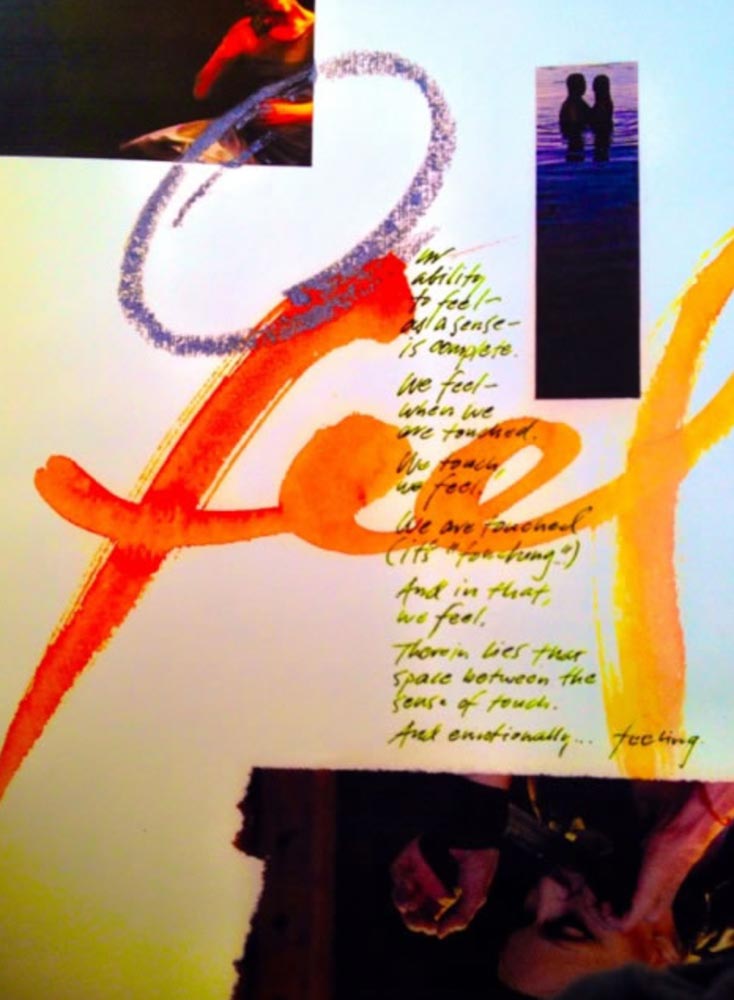 feel
our
ability
to feel—
as a sense—
is complete.
We feel—
when we
are touched.
We touch,
we feel.
We are touched
(it's "touching.")
And in that,
we feel.
Therein lies that
space between the
sense of touch.
And emotionally... feeling.